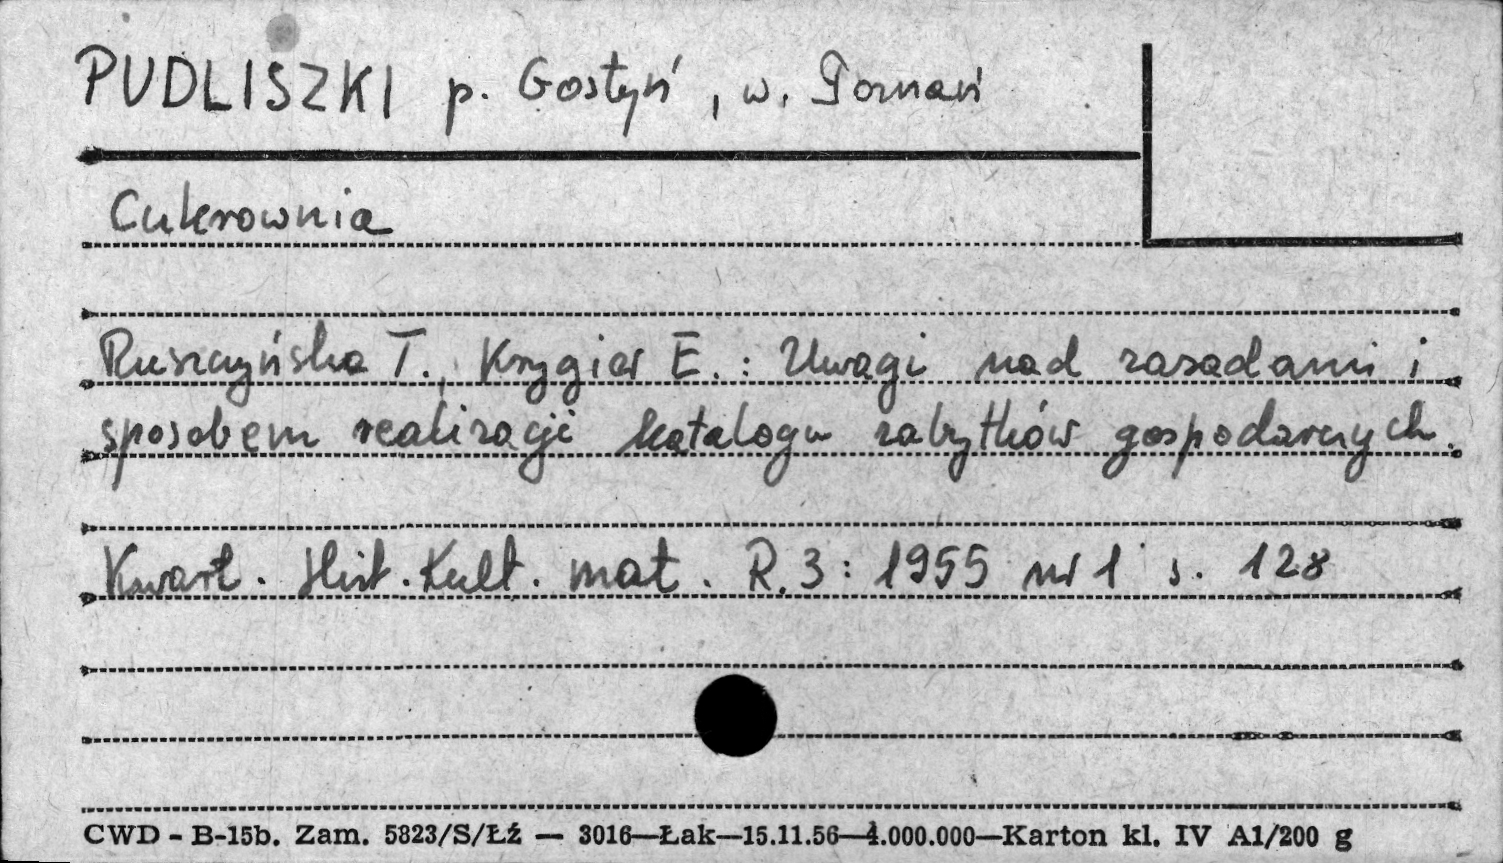 PUDLISZKI p. Gostyń, w. Poznań
Cukrownia
Ruszczyńska T., Krygier E.: Uwagi nad zasadami i
sposobem realizacji katalogu zabytków gospodarczych.
Kwart. Hist. Kult. mat. R.3: 1955 nr 1 s. 128
CWD - B-15b. Zam. 5823/S/Łź — 3016—Łak—15.11.56—4.000.000—Karton kl. IV A1/200 g